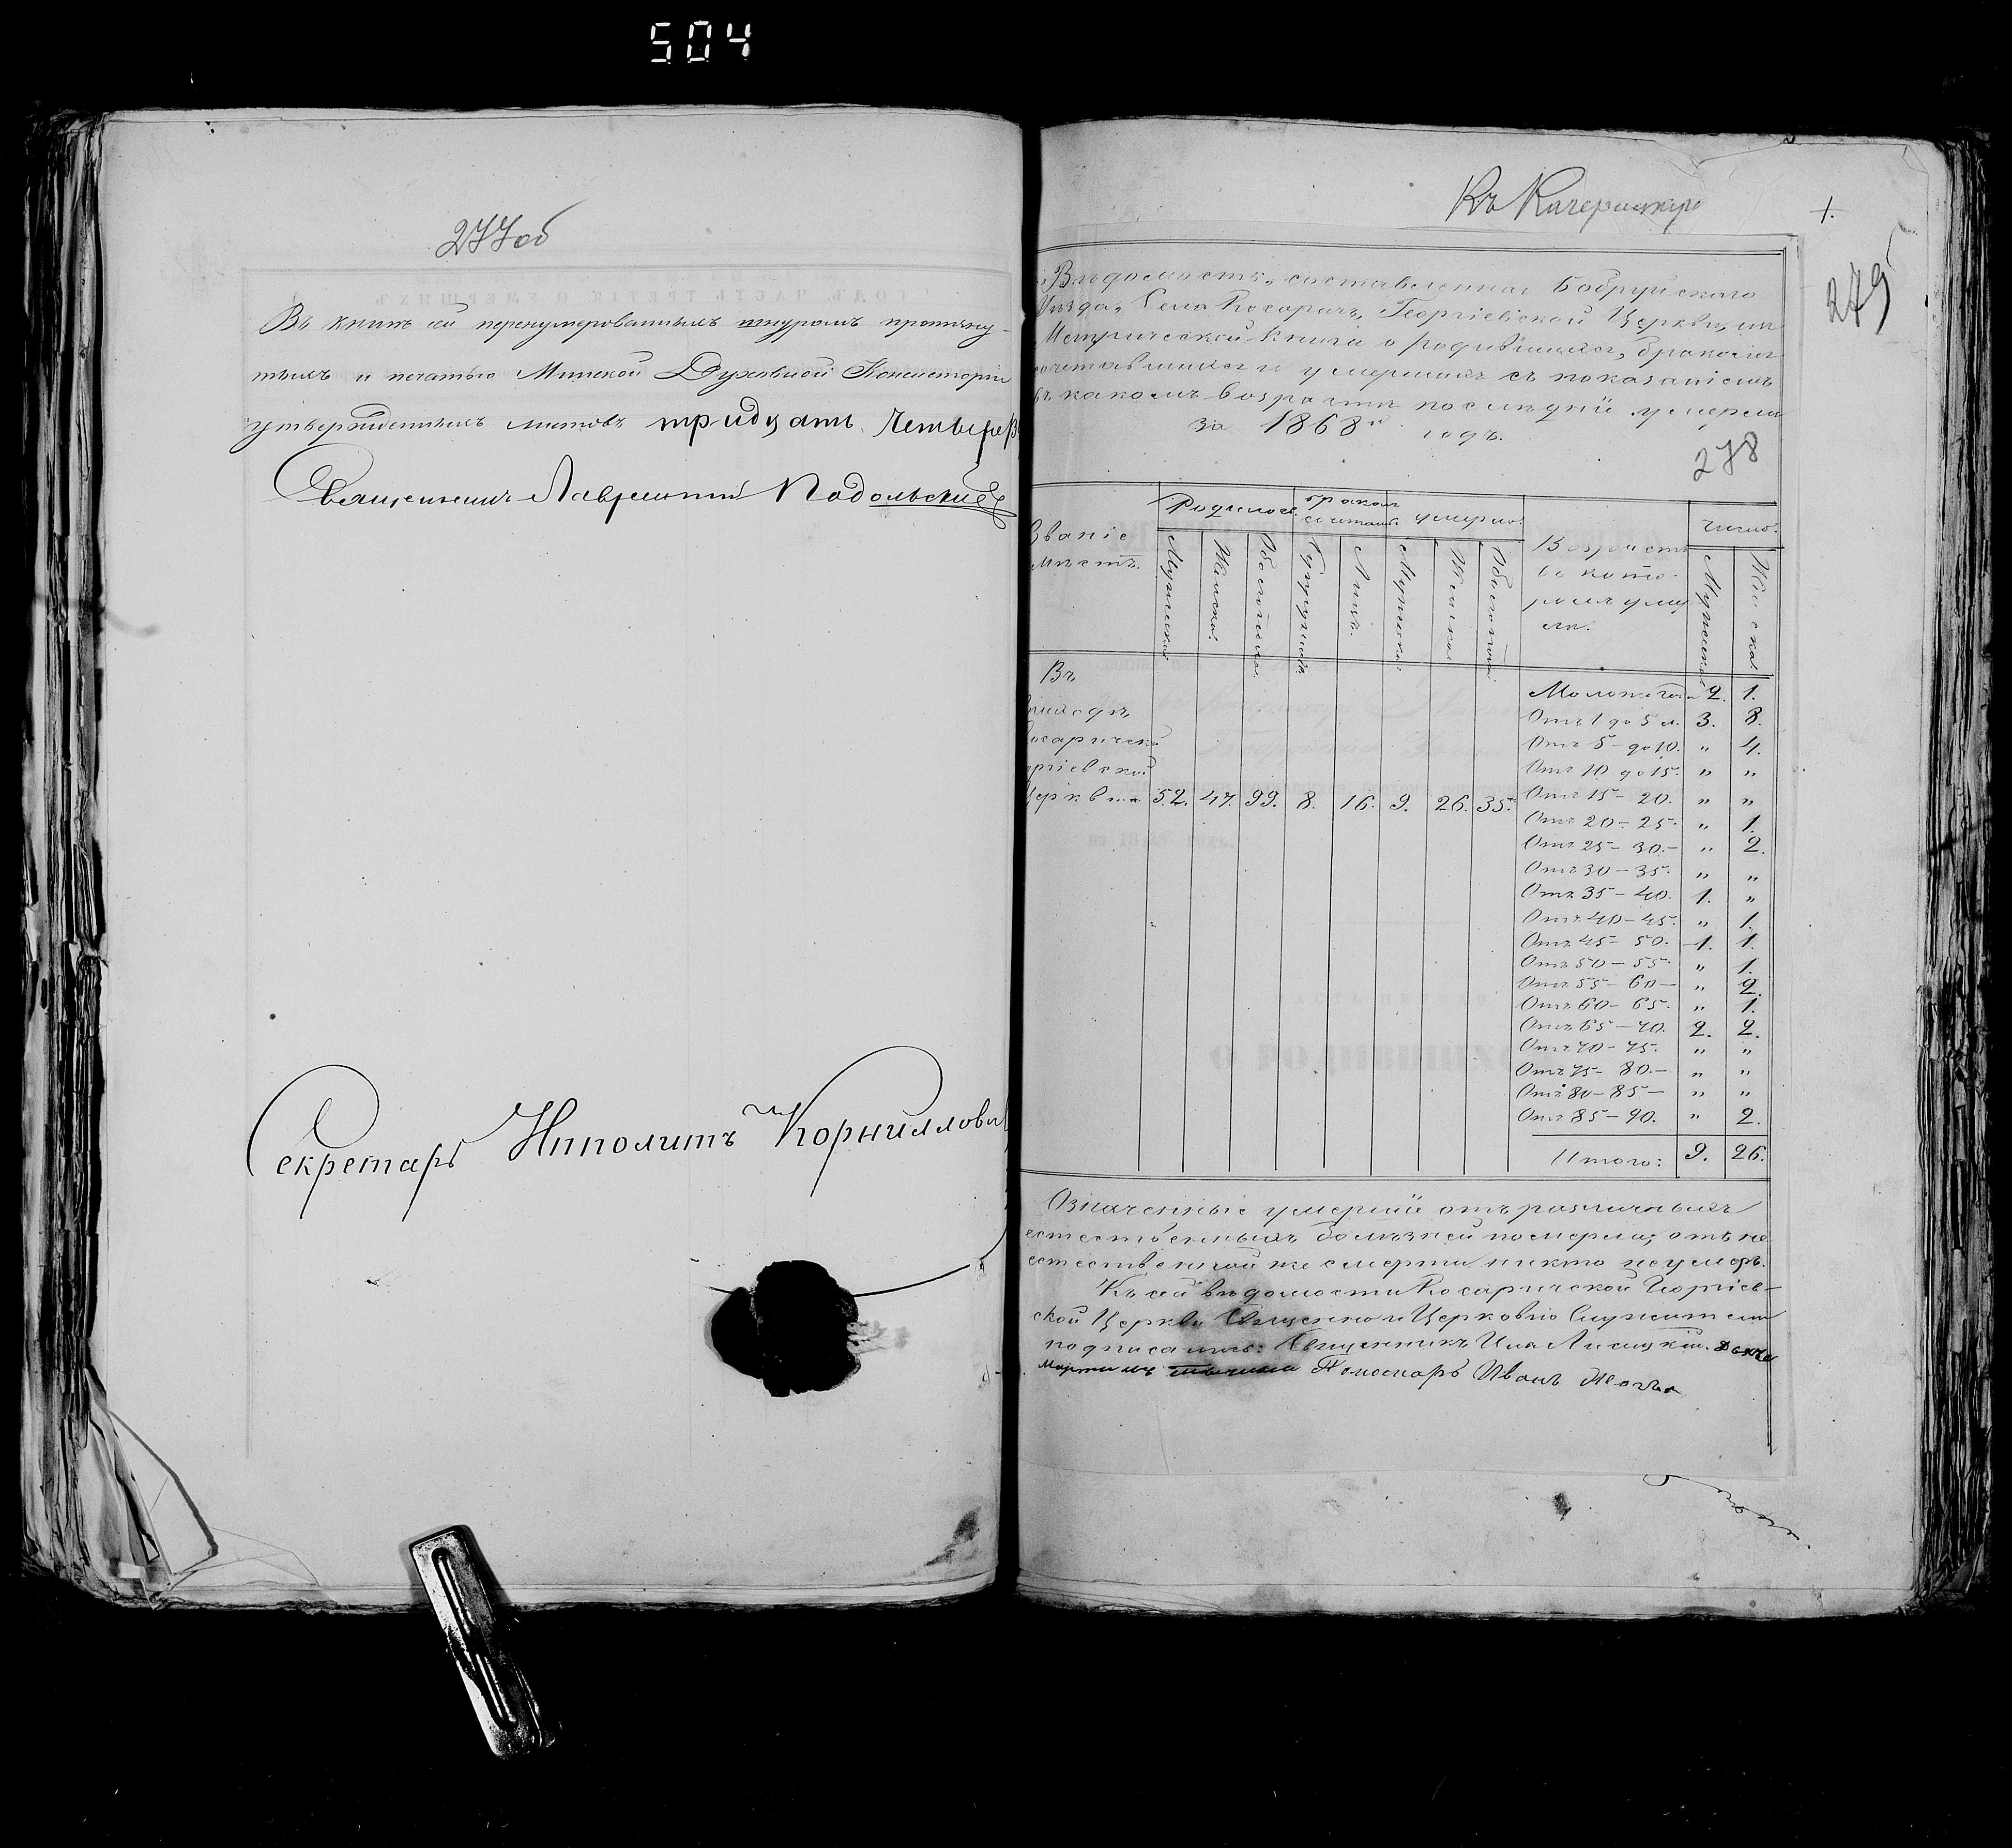 504
277об
Въ книгѣ сей перенумерованныхъ шнуромъ протяну-
тыхъ и печатью Минской Духовной Консисторіи
утвержденныхъ листовъ тридцать четыре
Священникъ Лаврентій Подольскій
Секретарь Ипполитъ Корнилловъ
Къ
1.
279
Вѣдомость, составленная Бобруйскаго
Уѣзда, Села Косаричъ, Георгіевской Церкви, изъ
Метрической книги о родившихся, бракомъ
сочетавшихся и умершихъ съ показаніемъ
въ какомъ возрастѣ послѣдніе умерли
за 1868й годъ.
278
Званіе мѣстъ.
Родилось.
бракомъ сочетал.
умерло.
Возрастъ въ которомъ умерли.
число.
Мужеска.
Женска.
Обоего пола.
Супружествъ.
Лицъ.
Мужеска.
Женска.
Обоего пола.
Мужеска.
Женска.
Въ
приходѣ
Косаричской
Георгіевской
Церкви 52. 47. 99. 8. 16. 9. 26. 35.
Моложе года 2. 1.
Отъ 1 до 5 л. 3. 8.
Отъ 5 - до 10. " 4.
Отъ 10 до 15. " "
Отъ 15 - 20. " "
Отъ 20 - 25. " 1.
Отъ 25 - 30. - " 2.
Отъ 30 - 35. " "
Отъ 35 - 40. 1. "
Отъ 40 - 45. " 1.
Отъ 45 - 50. 1. 1.
Отъ 50 - 55. " 1.
Отъ 55 - 60 - " 2.
Отъ 60 - 65. " 1.
Отъ 65 - 70. 2. 2.
Отъ 70 - 75. " "
Отъ 75 - 80. - " "
Отъ 80 - 85 - " "
Отъ 85 - 90. " 2.
Итого: 9. 26.
Означенные умершіе отъ различныхъ
естественныхъ болѣзней померли; отъ не
естественной же смерти никто не умеръ.
Къ сей вѣдомости Косаричской Георгіев-
ской Церкви Священно и Церковно Служители
подписались: Священникъ Илія Лисицкій.
Пономарь Иванъ